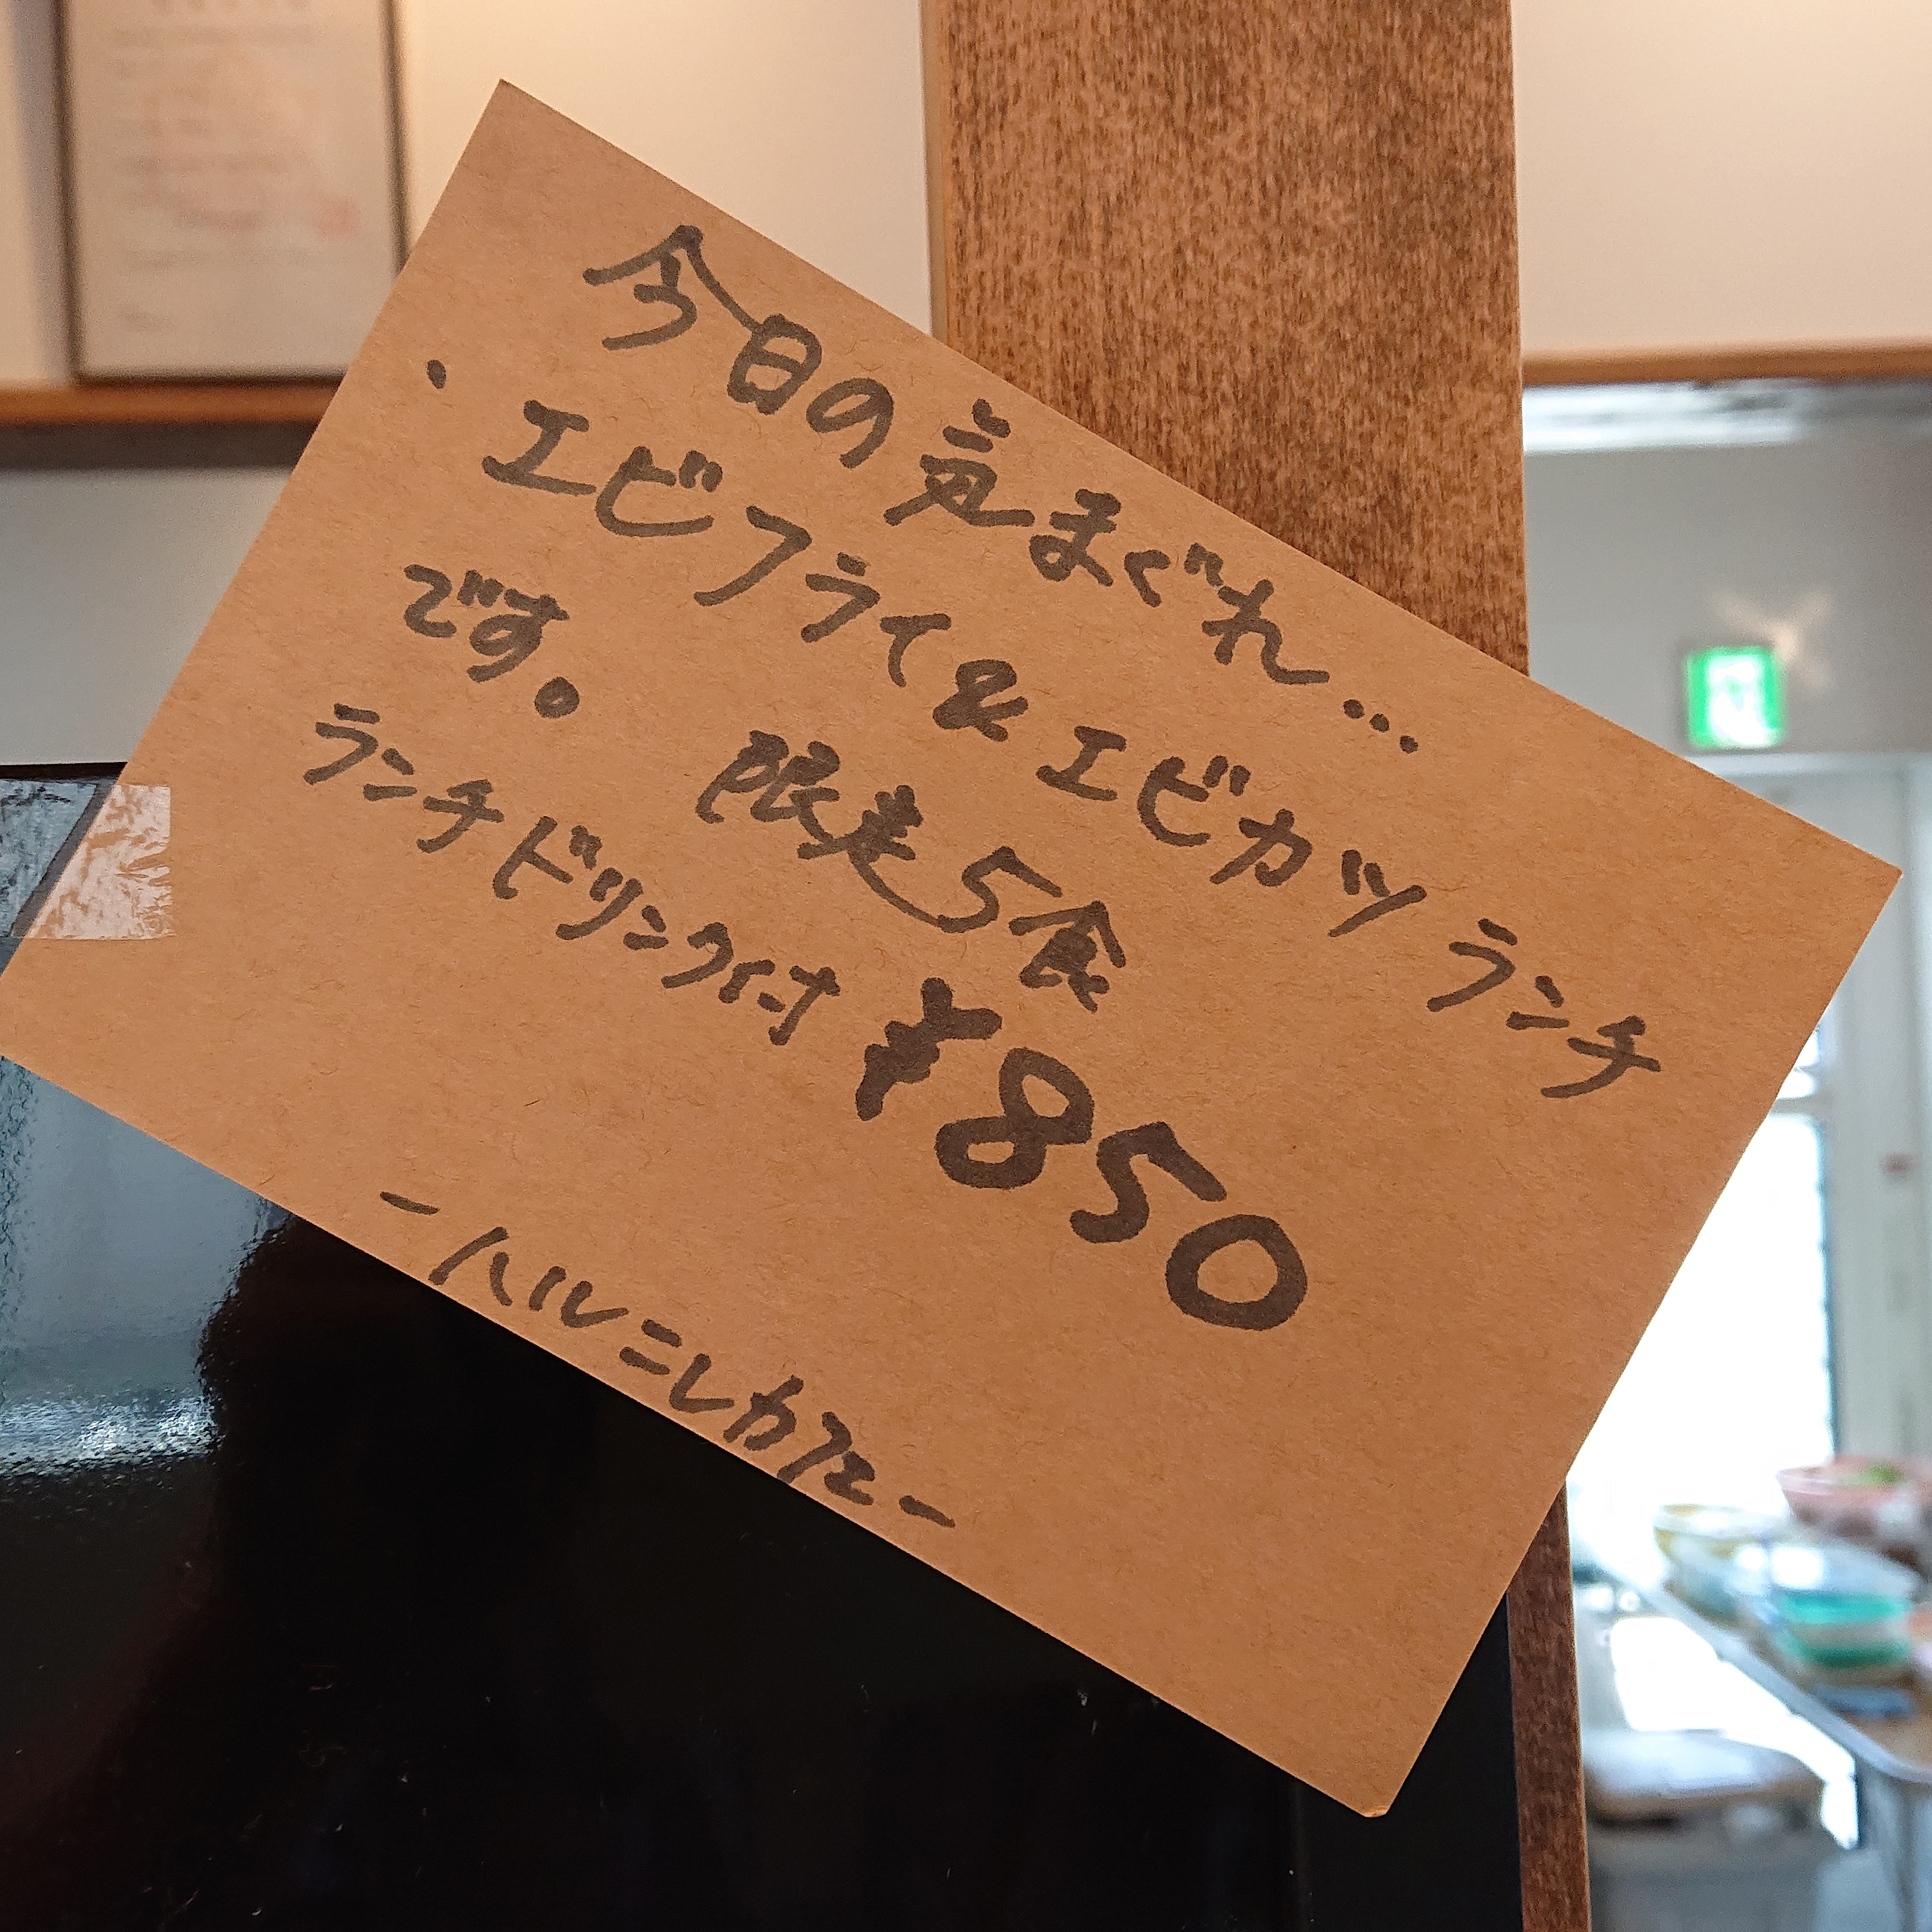 今日の気まぐれ…
・エビフライ&エビカツランチ
です。限定5食
ランチドリンク付 ¥850
ーハルニレカフェー